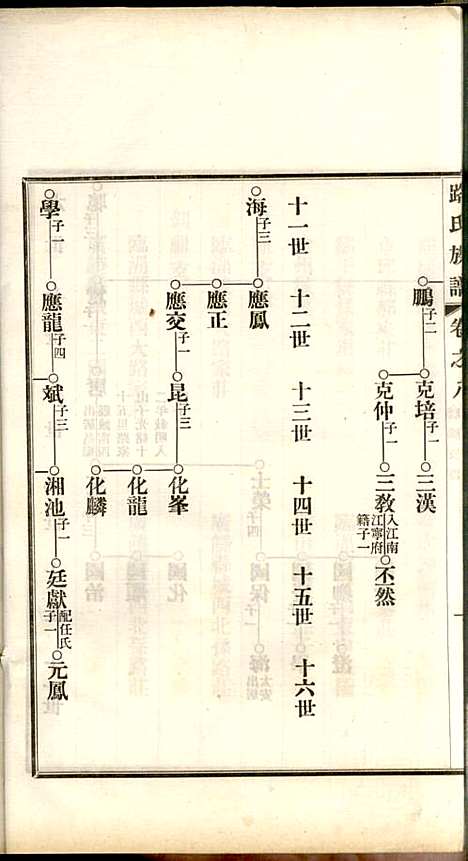 路氏族譜 卷之八
鵬 子二
克培 子一
三漢
克仲 子一
三教 入江南江寧府籍子一
不然
十一世 十二世 十三世 十四世 十五世 十六世
海 子三
應鳳
應正
應交 子一
昆 子三
化峯
化龍
化麟
學 子一
應龍 子四
斌 子三
湘池 子一
廷獻 配任氏子一
元鳳